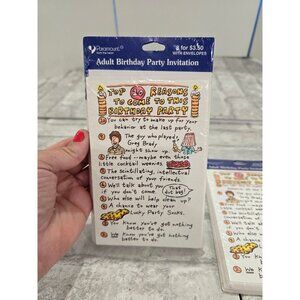 Paramount
8 for $3.50
WITH ENVELOPES
Adult Birthday Party Invitation
TOP 10 REASONS
TO COME TO THIS
BIRTHDAY PARTY
10 You can try to make up for your
behavior at the last party.
9 The guy who played
Greg Brady
might show up.
8 Free food--maybe even those
little cocktail weenies.
7 The scintillating, intellectual
conversation of your friends.
6 We'll talk about you
if you don't come.
That dirt bag!
5 Who else will help clean up?
4 A chance to wear your
Lucky Party Socks.
2 You know you've got nothing
better to do.
1 We know you've got nothing
better to do.